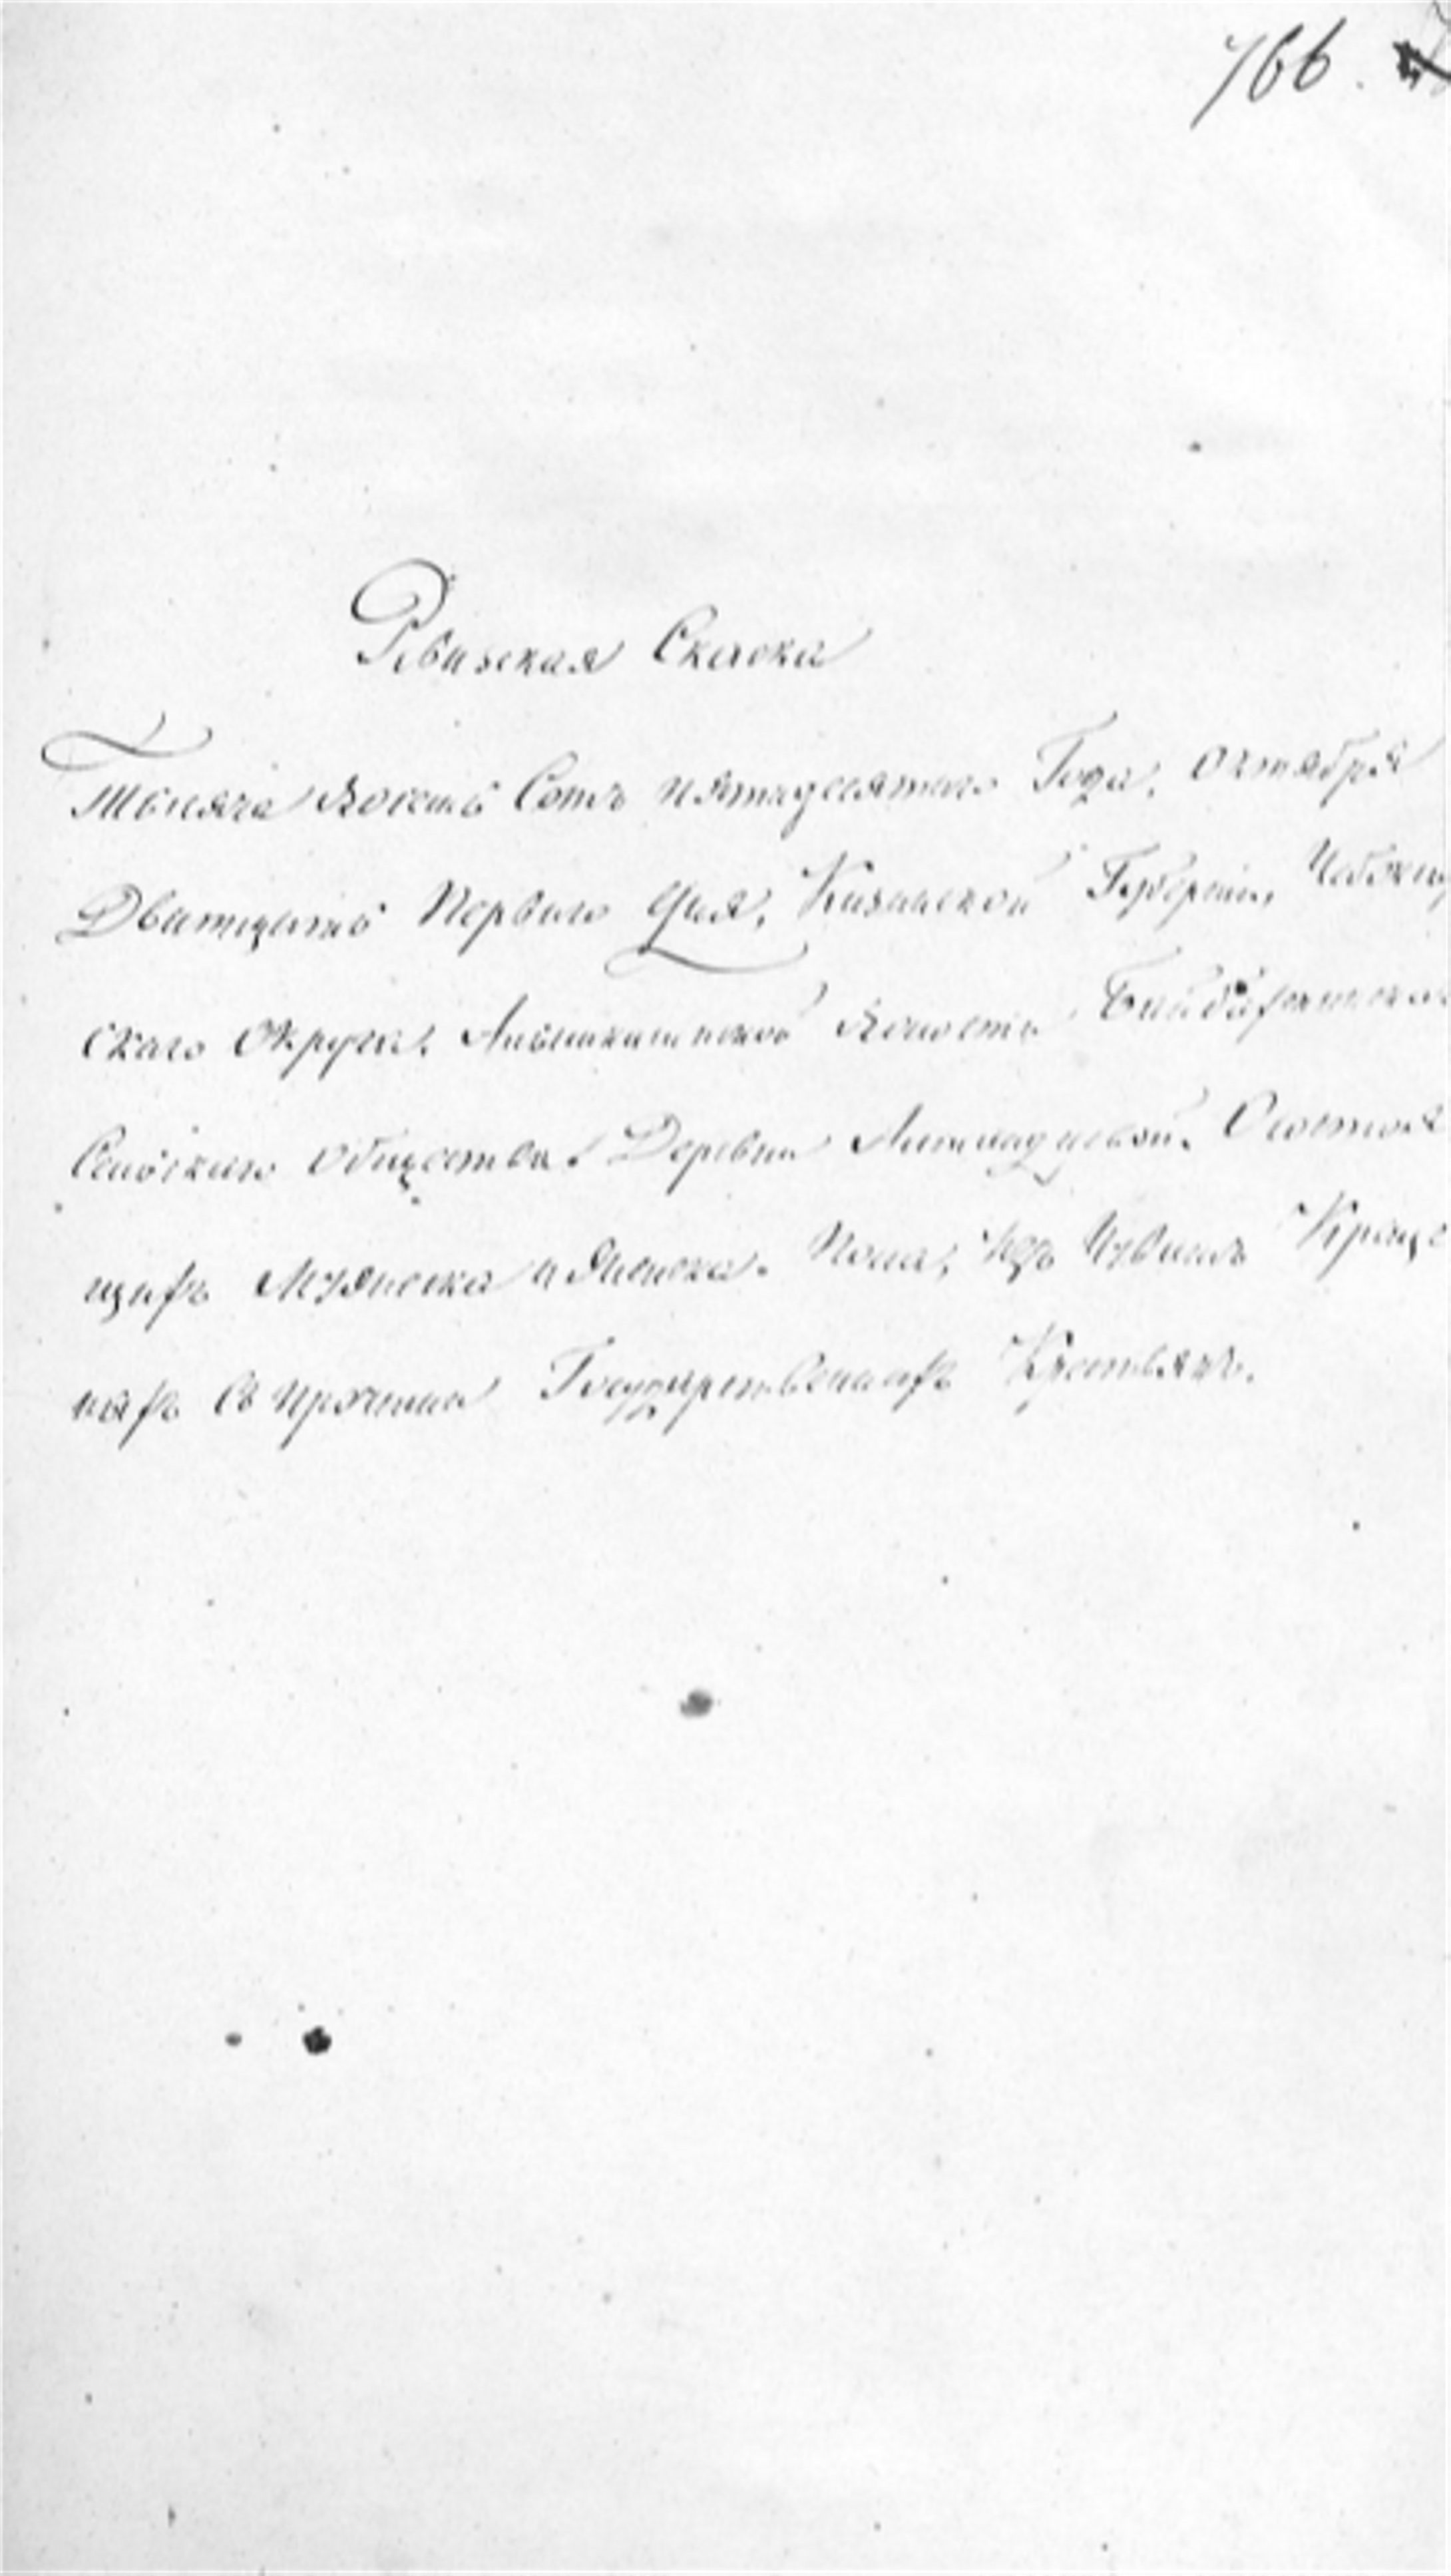 766.
Ревизская Сказка
Тысяча Восемь Сотъ пятидесятаго Года, Октября
Дватцать Перваго Дня, Казанской Губерніи, Чебоксар
скаго Округа, Волости
Сельскаго Общества. Деревни Состоя
щихъ Мужеска и Женска. Пола, Изъ Чувашъ Креще
ныхъ Съ прочими Государственныхъ Крестьянъ.